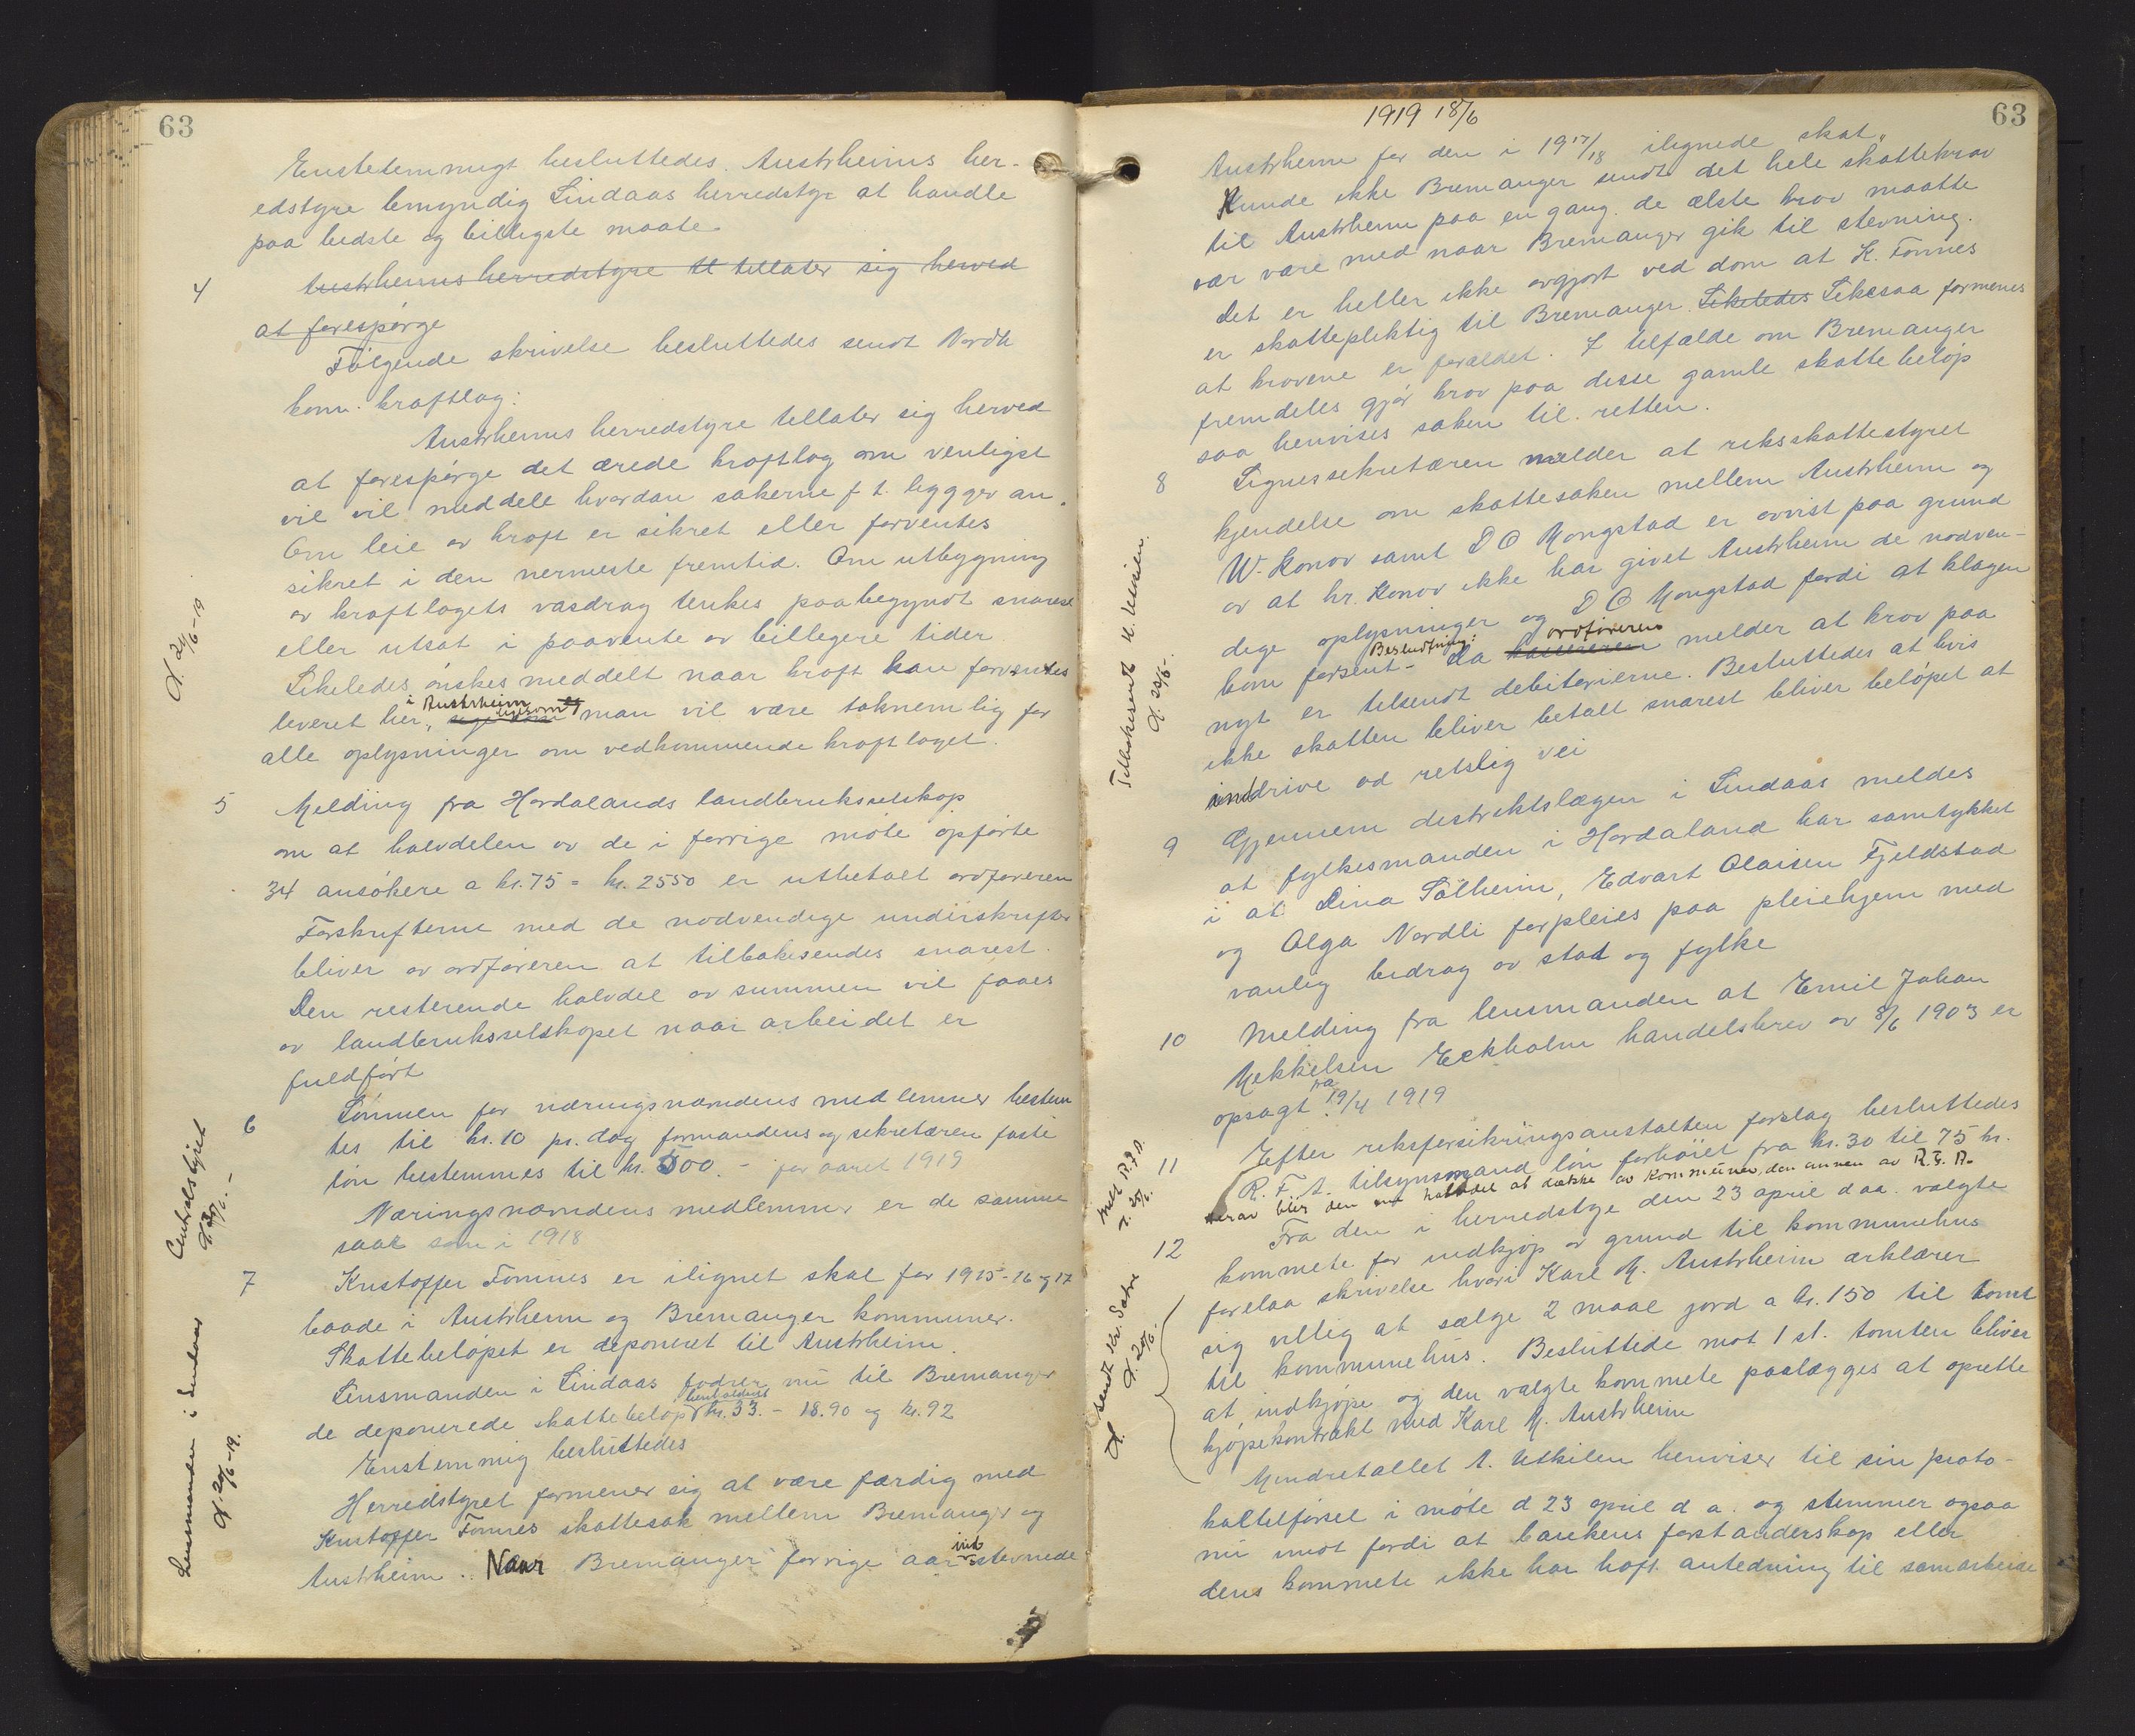 63
Enstetemmigt besluttedes. Austrheims her-
edstyre bemyndig Lindaas herredstyr at handle
paa bedste og billigste maate
4 Austrheims herredstyre tillater sig herved
at forespørge
Følgende skrivelse besluttedes sendt Nordh
kom. kraftlag:
Austrheims herredstyre tillater sig herved
at forespørge det ærede kraftlag om venligst
vil vil meddele hvordan sakerne f t. liggger an.
Om leie av kraft er sikret eller forventes
sikret i den nermeste fremtid. Om utbygning
av kraftlagets vasdrag tenkes paabegyndt snarest
eller utsat i paavente av billegere tider
Likeledes ønskes meddelt naar kraft kan forventes
i Austrheim ligesom
leveret her, man vil være taknemlig for
alle oplysninger om vedkommende kraftlaget.
d. 24/6-19
5 Melding fra Hordalands landbruksselskap
om at halvdelen av de i forrige møte opførte
34 ansökere a kr. 75 = kr. 2550 er utbetalt ordføreren
Forskrifterne med de nødvendige underskrifter
bliver av ordføreren at tilbakesendes snarest.
Den resterende halvdel av summen vil faaes
av landbruksselskapet naar arbeidet er
fuldført
6 Lønnen for næringsnævndens medlemmer bestem
tes til kr. 10 pr. dag formandens og sekretæren faste
løn bestemmes til kr. 500.- for aaret 1919
Næringsnævndens medlemmer er de samme
saae som i 1918
Centralstyret
7 Kristoffer Fonnes er ilignet skat for 1915-16 og 17
baade i Austrheim og Bremanger kommuner.
Skattebeløpet er deponeret til Austrheim.
Lensmanden i Lindaas fodrer nu til Bremanger
henholdsvis
de deponerede skattebeløp kr. 33.- 18.90 og kr. 92
Enstemmig besluttedes
Herredstyret formener sig at være færdig med
Kristoffer Fonnes skattesak mellem Bremanger og
ind
Austrheim. Naar Bremanger forrige aar stevnede
Lensmanden i Lindaas
d. 20/6-19.
1919 18/6
63
Austrheim for den i 1917/18 ilignede skat,
Kunde ikke Bremanger sendt det hele skattekrav
til Austrheim paa en gang. de ælste krav maatte
vær være med naar Bremanger gik til stevning.
Det er heller ikke avgjort ved dom at K. Fonnes
er skattepliktig til Bremanger. Likeledes Likesaa formenes
at kravene er forældet. I tilfælde om Bremanger
fremdeles gjør krav paa disse gamle skattebeløp
saa henvises saken til retten.
8 Lignessekretæren melder at riksskattestyret
kjendelse om skattesaken mellem Austrheim og
W. Konov samt D O Mongstad er avvist paa grund
av at hr. Konov ikke har givet Austrheim de nødven-
dige oplysninger og D O Mongstad fordi at klagen
Beslutning: ordføreren
kom forsent- Da kassereren melder at krav paa
nyt er tilsendt debitorierne. Besluttedes at hvis
ikke skatten bliver betalt snarest bliver beløpet at
inddrive ad retslig vei
Tilbakesendt
9 Gjennem distriktslægen i Lindaas meldes
at fylkesmanden i Hordaland har samtykket
i at Dina Solheim, Edvart Olaisen Fjeldstad
og Olga Nordli forpleies paa pleiehjem med
vanlig bedrag av stat og fylke
10 Melding fra lensmanden at Emil Johan
Mekkelsen Eckholm handelsbrev av 8/6 1903 er
fra
opsagt 19/4 1919
11 Efter riksforsikringsanstalten forslag besluttedes
R. F. A. tilsynsmand løn forhöiet fra kr. 30 til 75 kr.
herav blir den ene halvdel at dække av kommunen, den annen av R. F. A.
Meld R.F.A.
12 Fra den i herredstyre den 23 april d aa. valgte
kommete for indkjøp av grund til kommunehus
forelaa skrivelse hvori Karl M. Austrheim ærklærer
sig villig at sælge 2 maal jord a kr. 150 til tomt
til kommunehus. Besluttede mot 1 st. tomten bliver
at indkjøpe og den valgte kommete paalægges at oprette
kjøpekontrakt med Karl M. Austrheim
Mindretallet A. Utkilen henviser til sin proto-
kaltilførsel i møte d 23 april d a. og stemmer ogsaa
nu imot fordi at bankens forstanderskap eller
dens kommete ikke har haft anledning til samarbeide